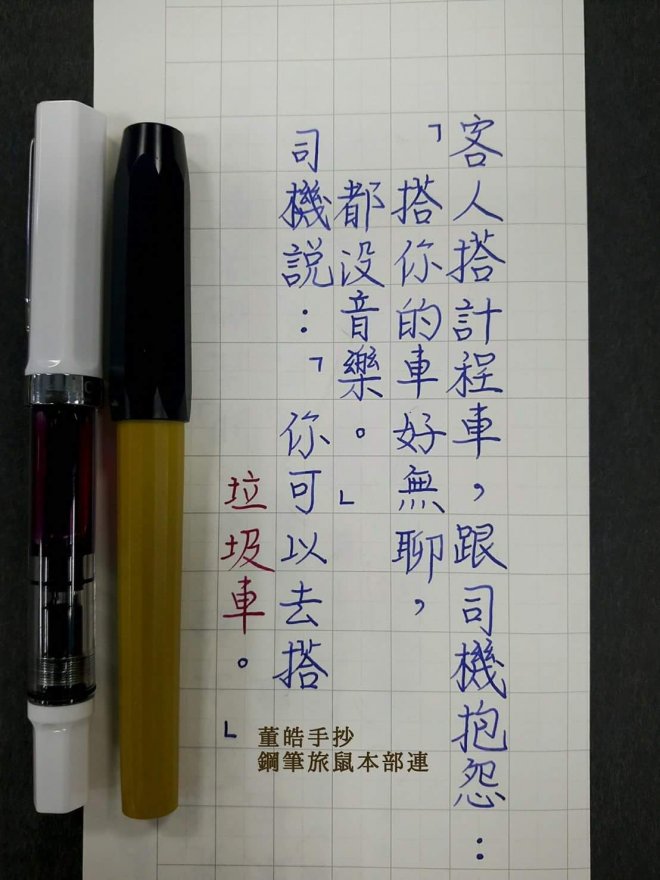 客人搭計程車，跟司機抱怨：
「搭你的車好無聊，
都没音樂。」
司機説：「你可以去搭
垃圾車。」
董皓手抄
鋼筆旅鼠本部連